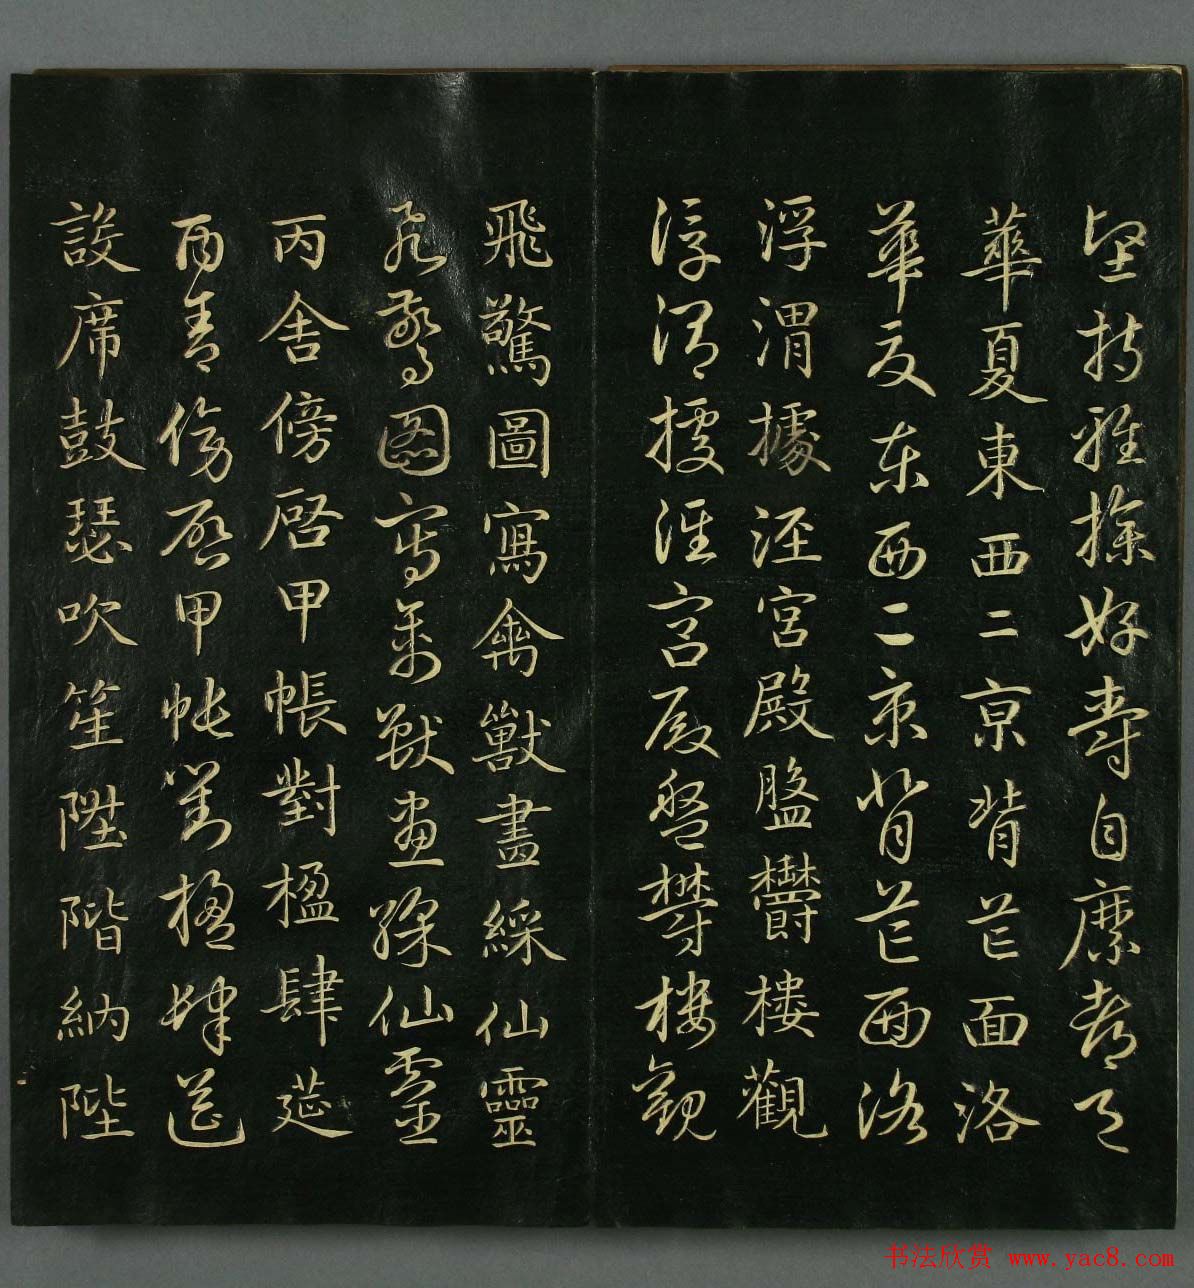 堅持雅操好爵自縻都邑
華夏東西二京背芒面洛
華夏东西二京背芒面洛
浮渭據涇宮殿盤欝樓觀
浮渭據涇宮殿盤欝樓觀
飛驚圖寫禽獸畫綵仙靈
飛驚圖寫禽獸畫綵仙靈
丙舍傍啓甲帳對楹肆筵
丙舍傍啓甲帳對楹肆筵
設席鼓瑟吹笙陞階納陛
书法欣赏 www.yac8.com